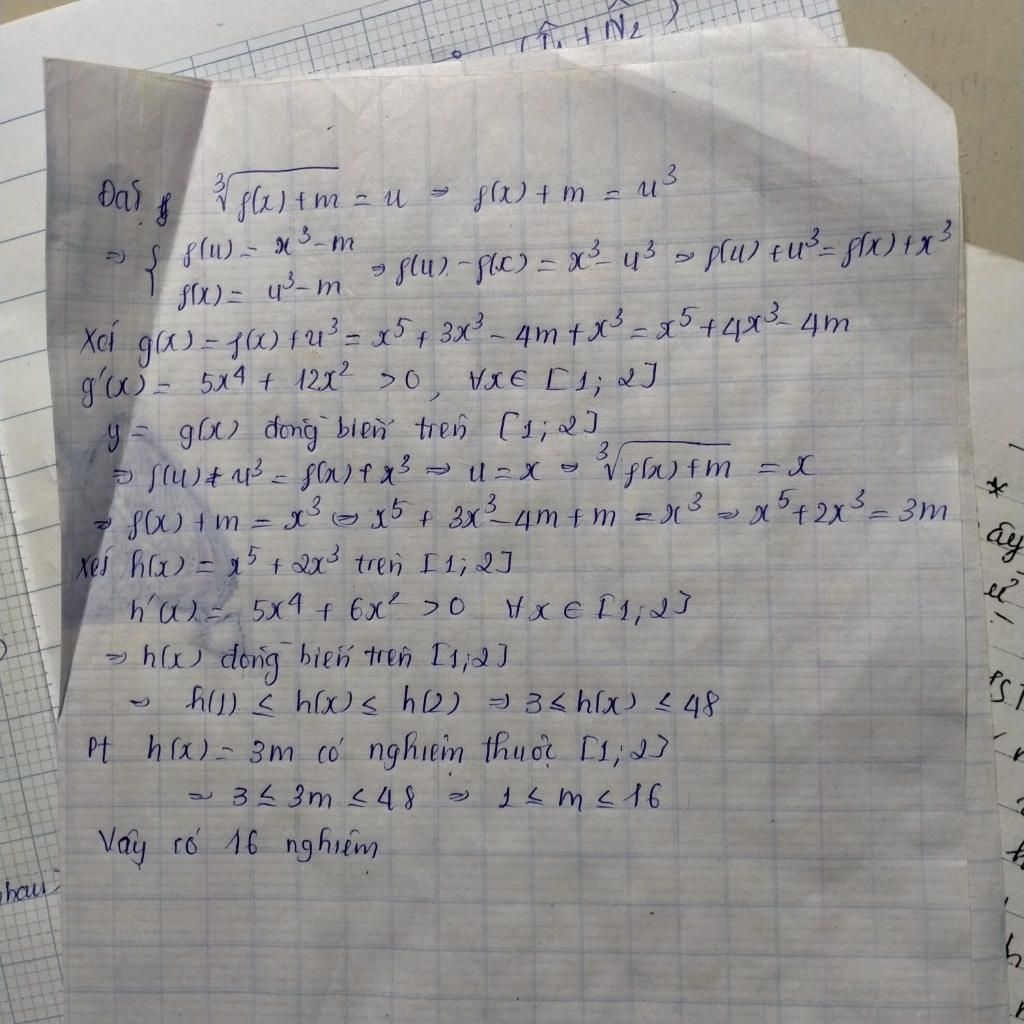 (N̂₁ + N̂₂)
Đặt ∛(f(x)+m) = u ⇒ f(x) + m = u³
⇒ { f(u) = x³ - m
f(x) = u³ - m ⇒ f(u) - f(x) = x³ - u³ ⇒ f(u) + u³ = f(x) + x³
Xét g(x) = f(x) + u³ = x⁵ + 3x³ - 4m + x³ = x⁵ + 4x³ - 4m
g'(x) = 5x⁴ + 12x² > 0, ∀x ∈ [1; 2]
y = g(x) đồng biến trên [1; 2]
⇒ f(u) + u³ = f(x) + x³ ⇒ u = x ⇒ ∛(f(x)+m) = x
⇒ f(x) + m = x³ ⇔ x⁵ + 3x³ - 4m + m = x³ ⇒ x⁵ + 2x³ = 3m
Xét h(x) = x⁵ + 2x³ trên [1; 2]
h'(x) = 5x⁴ + 6x² > 0 ∀x ∈ [1; 2]
⇒ h(x) đồng biến trên [1; 2]
⇒ h(1) ≤ h(x) ≤ h(2) ⇒ 3 ≤ h(x) ≤ 48
Pt h(x) = 3m có nghiệm thuộc [1; 2]
⇒ 3 ≤ 3m ≤ 48 ⇒ 1 ≤ m ≤ 16
Vậy có 16 nghiệm